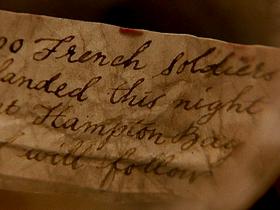 00 French soldiers
landed this night
at Hampton Bay
I will follow